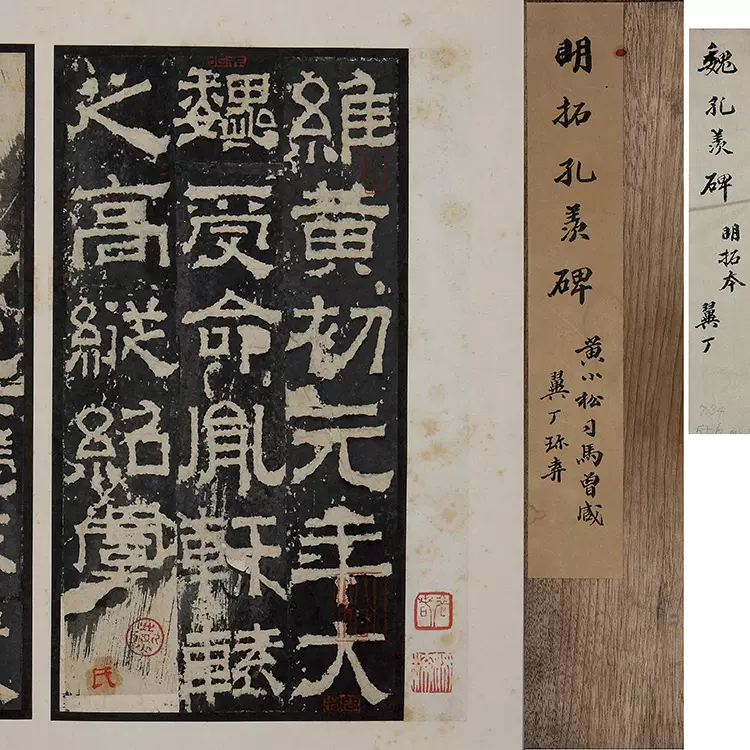 魏孔羨碑
明拓本 翼丁
明拓孔羨碑
黃小松司馬曾臧
翼丁珎弆
維黃初元年大
魏受命胤軒轅
之高縱紹虞
氏